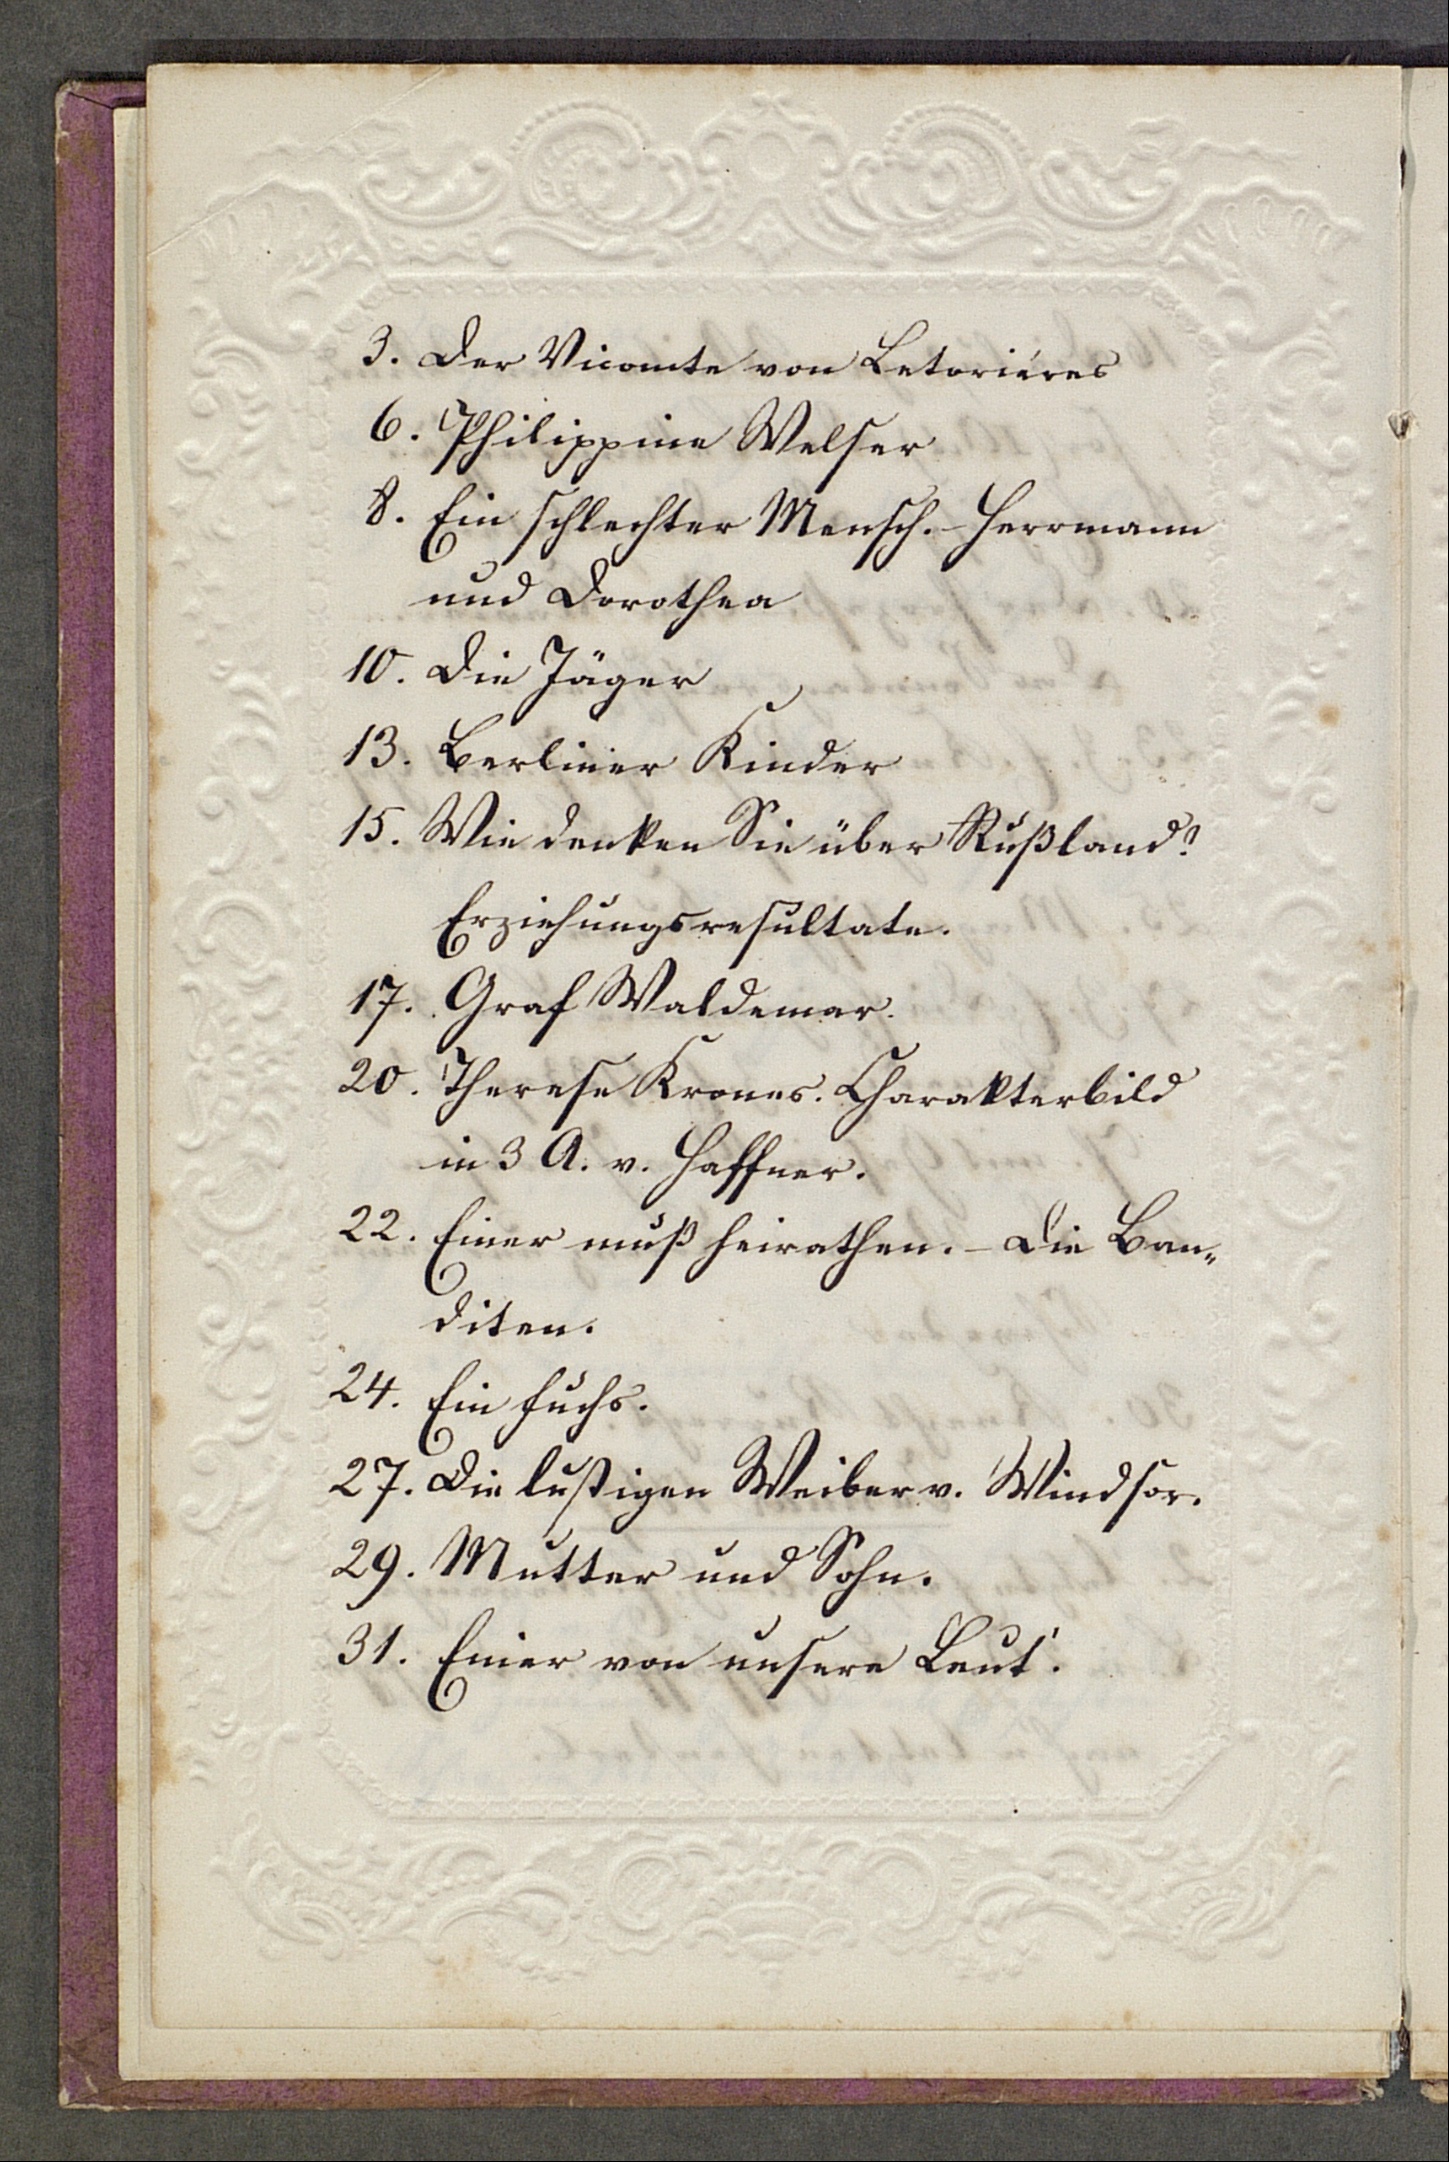 3. Der Vicomte von Letoriéres
6. Philippine Welser
8. Ein schlechter Mensch. - Herrmann
und Dorothea
10. Die Jäger
13. Berliner Kinder
15. Wie denken Sie über Rußland?
Erziehungsresultate.
17. Graf Waldemar.
20. Therese Krones. Charakterbild
in 3 A. v. Haffner.
22. Einer muß heirathen. - Die Ban„
diten.
24. Ein Fuchs.
27. Die lustigen Weiber v. Windsor.
29. Mutter und Sohn.
31. Einer von unsere Leut'.